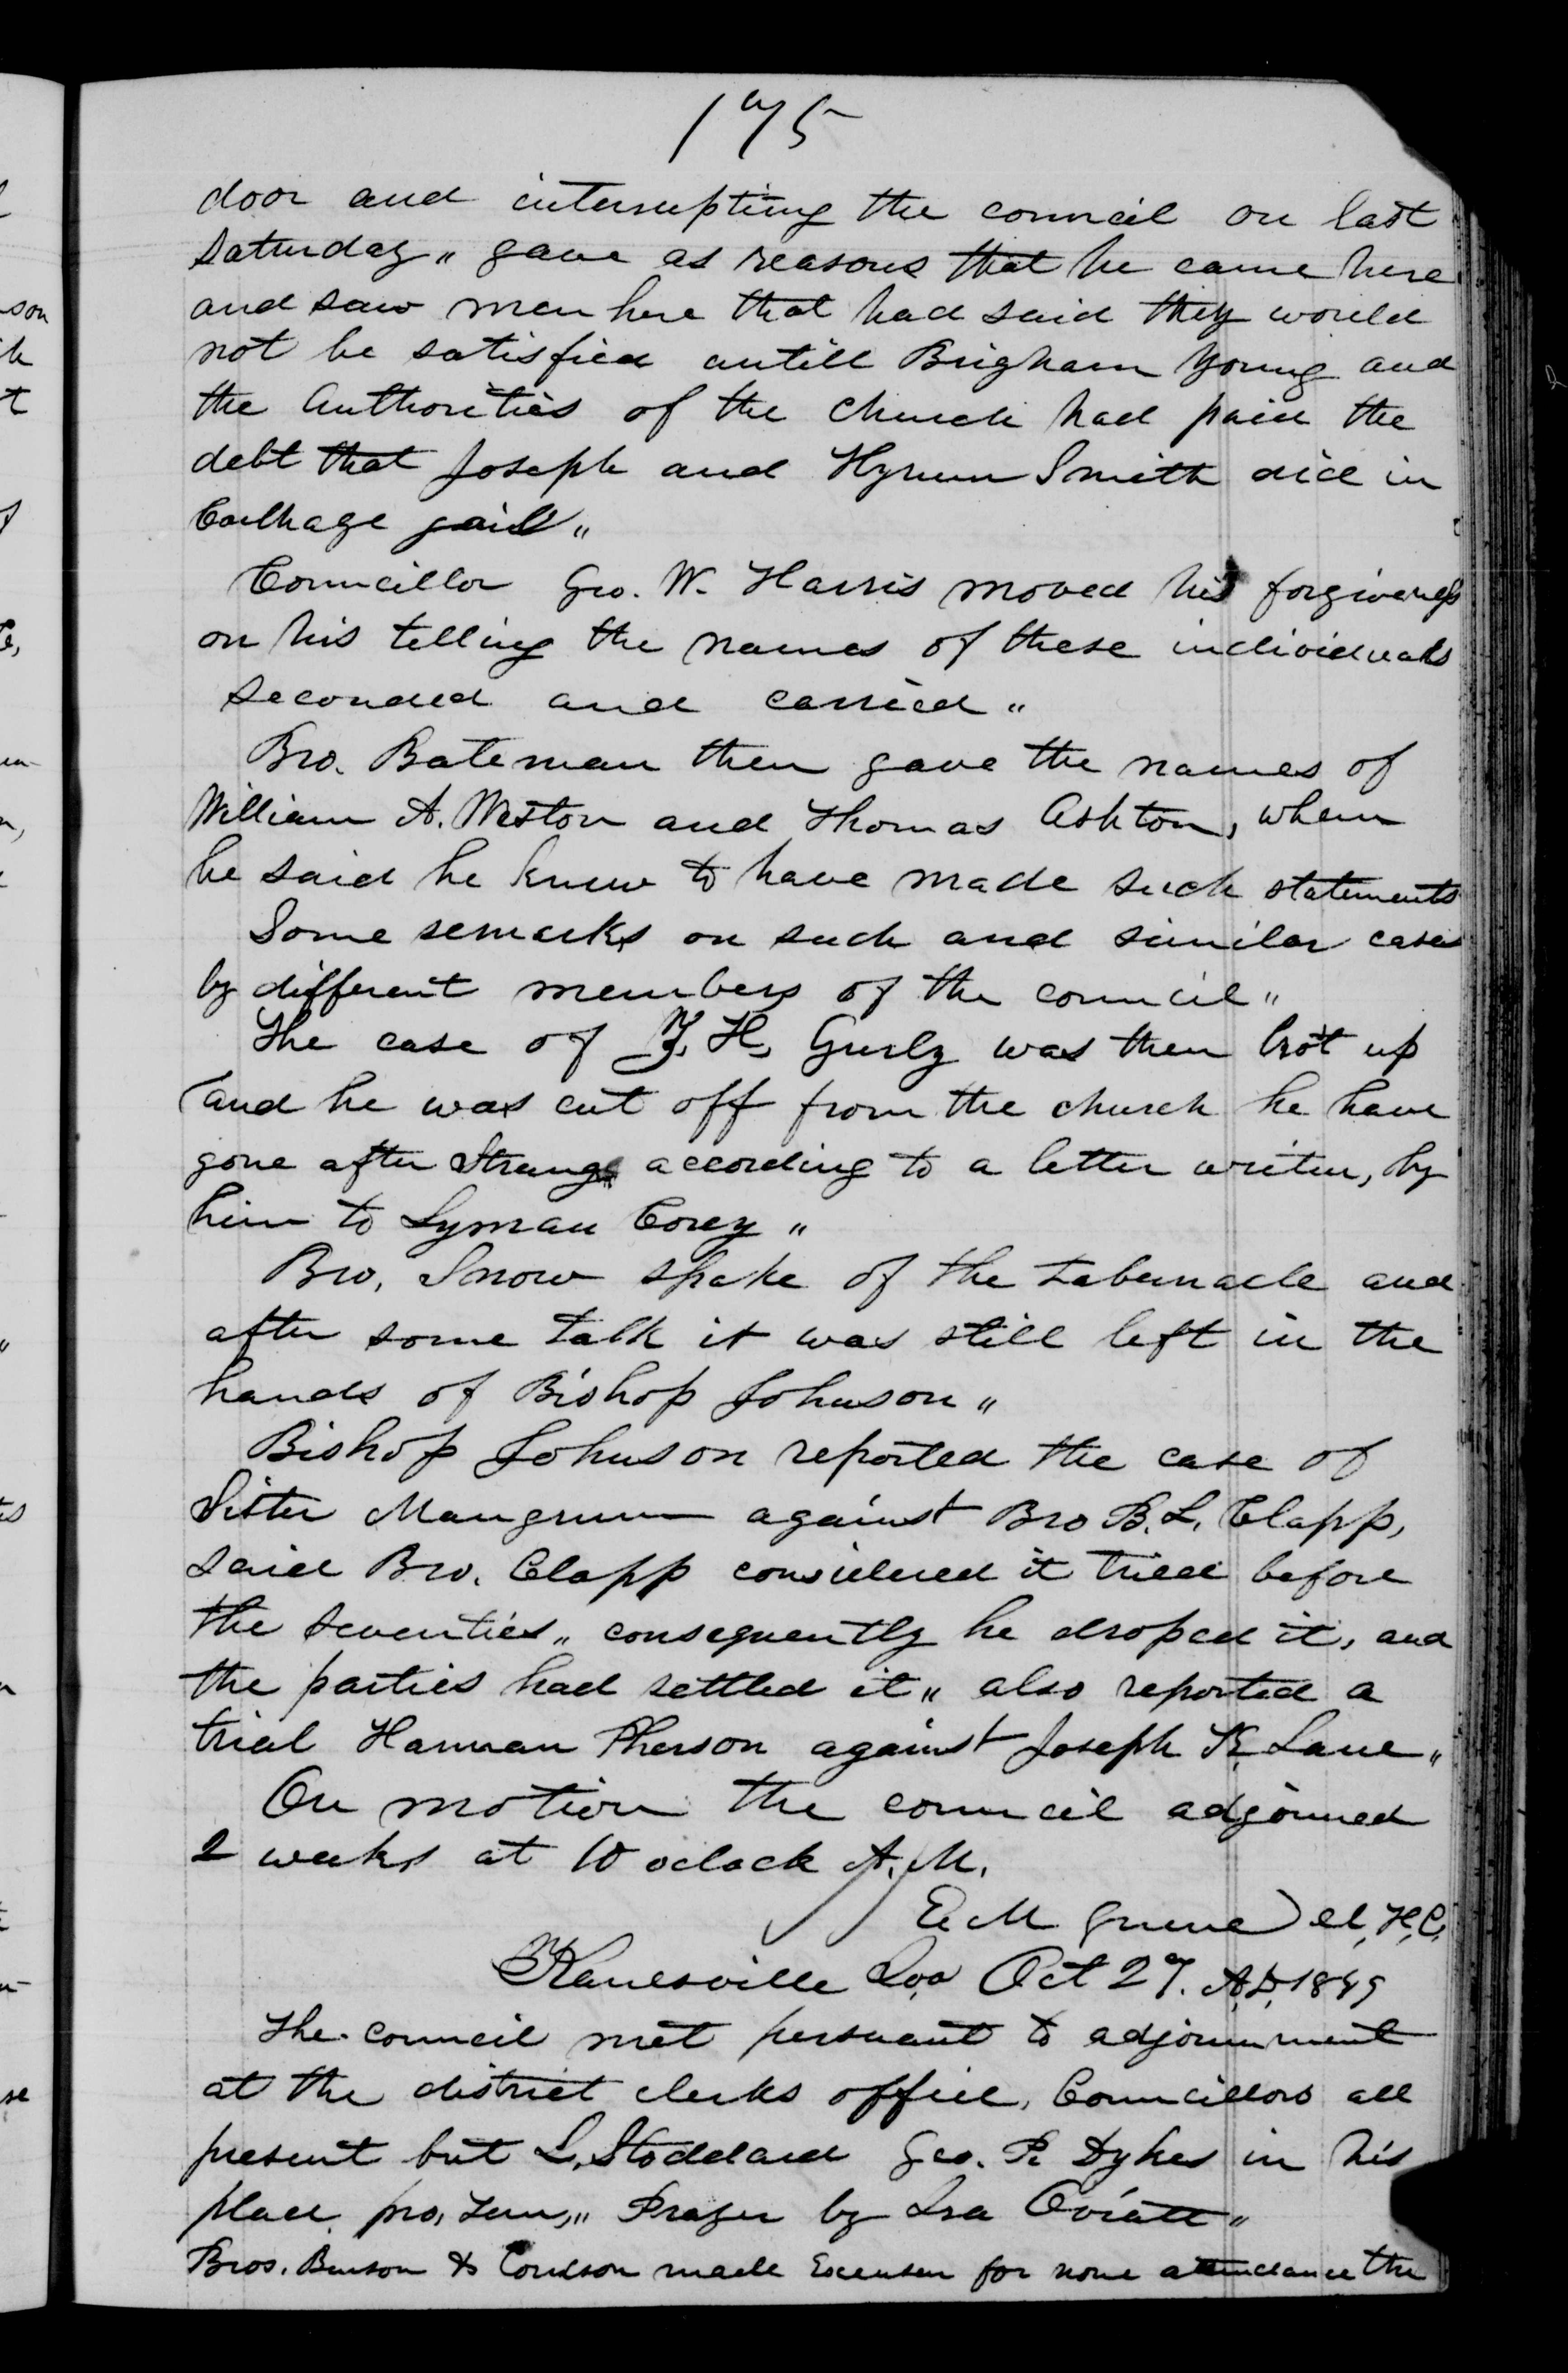 175
door and interrupting the council on last
Saturday „ gave as reasons that he came here
and saw men here that had said they would
not be satisfied untill Brigham Young and
the Authorities of the church had paid the
debt that Joseph and Hyrum Smith did in
Carthage jail „
Councillor Geo. W. Harris moved his forgiveness
on his telling the names of these individuals
seconded and carried „
Bro. Bateman then gave the names of
William A. Weston and Thomas Ashton, whem
he said he knew to have made such statements
Some remarks on such and similar cases
by different members of the council „
The case of Z. H. Gurly was then brot up
and he was cut off from the church he have
gone after Strang according to a letter writen, by
him to Lyman Corey „
Bro. Snow spake of the tabernacle and
after some talk it was still left in the
hands of Bishop Johnson „
Bishop Johnson reported the case of
Sister Mangrum against Bro B. L. Clapp,
said Bro. Clapp considered it tried before
the seventies „ consequently he droped it, and
the parties had settled it „ also reported a
trial Harman Pherson against Joseph K. Lane „
On motion the council adjourned
2 weeks at 10 oclock A. M.
E. M Greene Cl, H, C,
Kanesville Ioa Oct 27. A,D, 1849
The council met persuant to adjournment
at the district clerks office, Councillors all
present but L, Stoddard Geo. P. Dykes in his
place pro, tem, „ Prayer by Ira Oviatt „
Bros. Benson & Coulson made Excuses for none attendance the